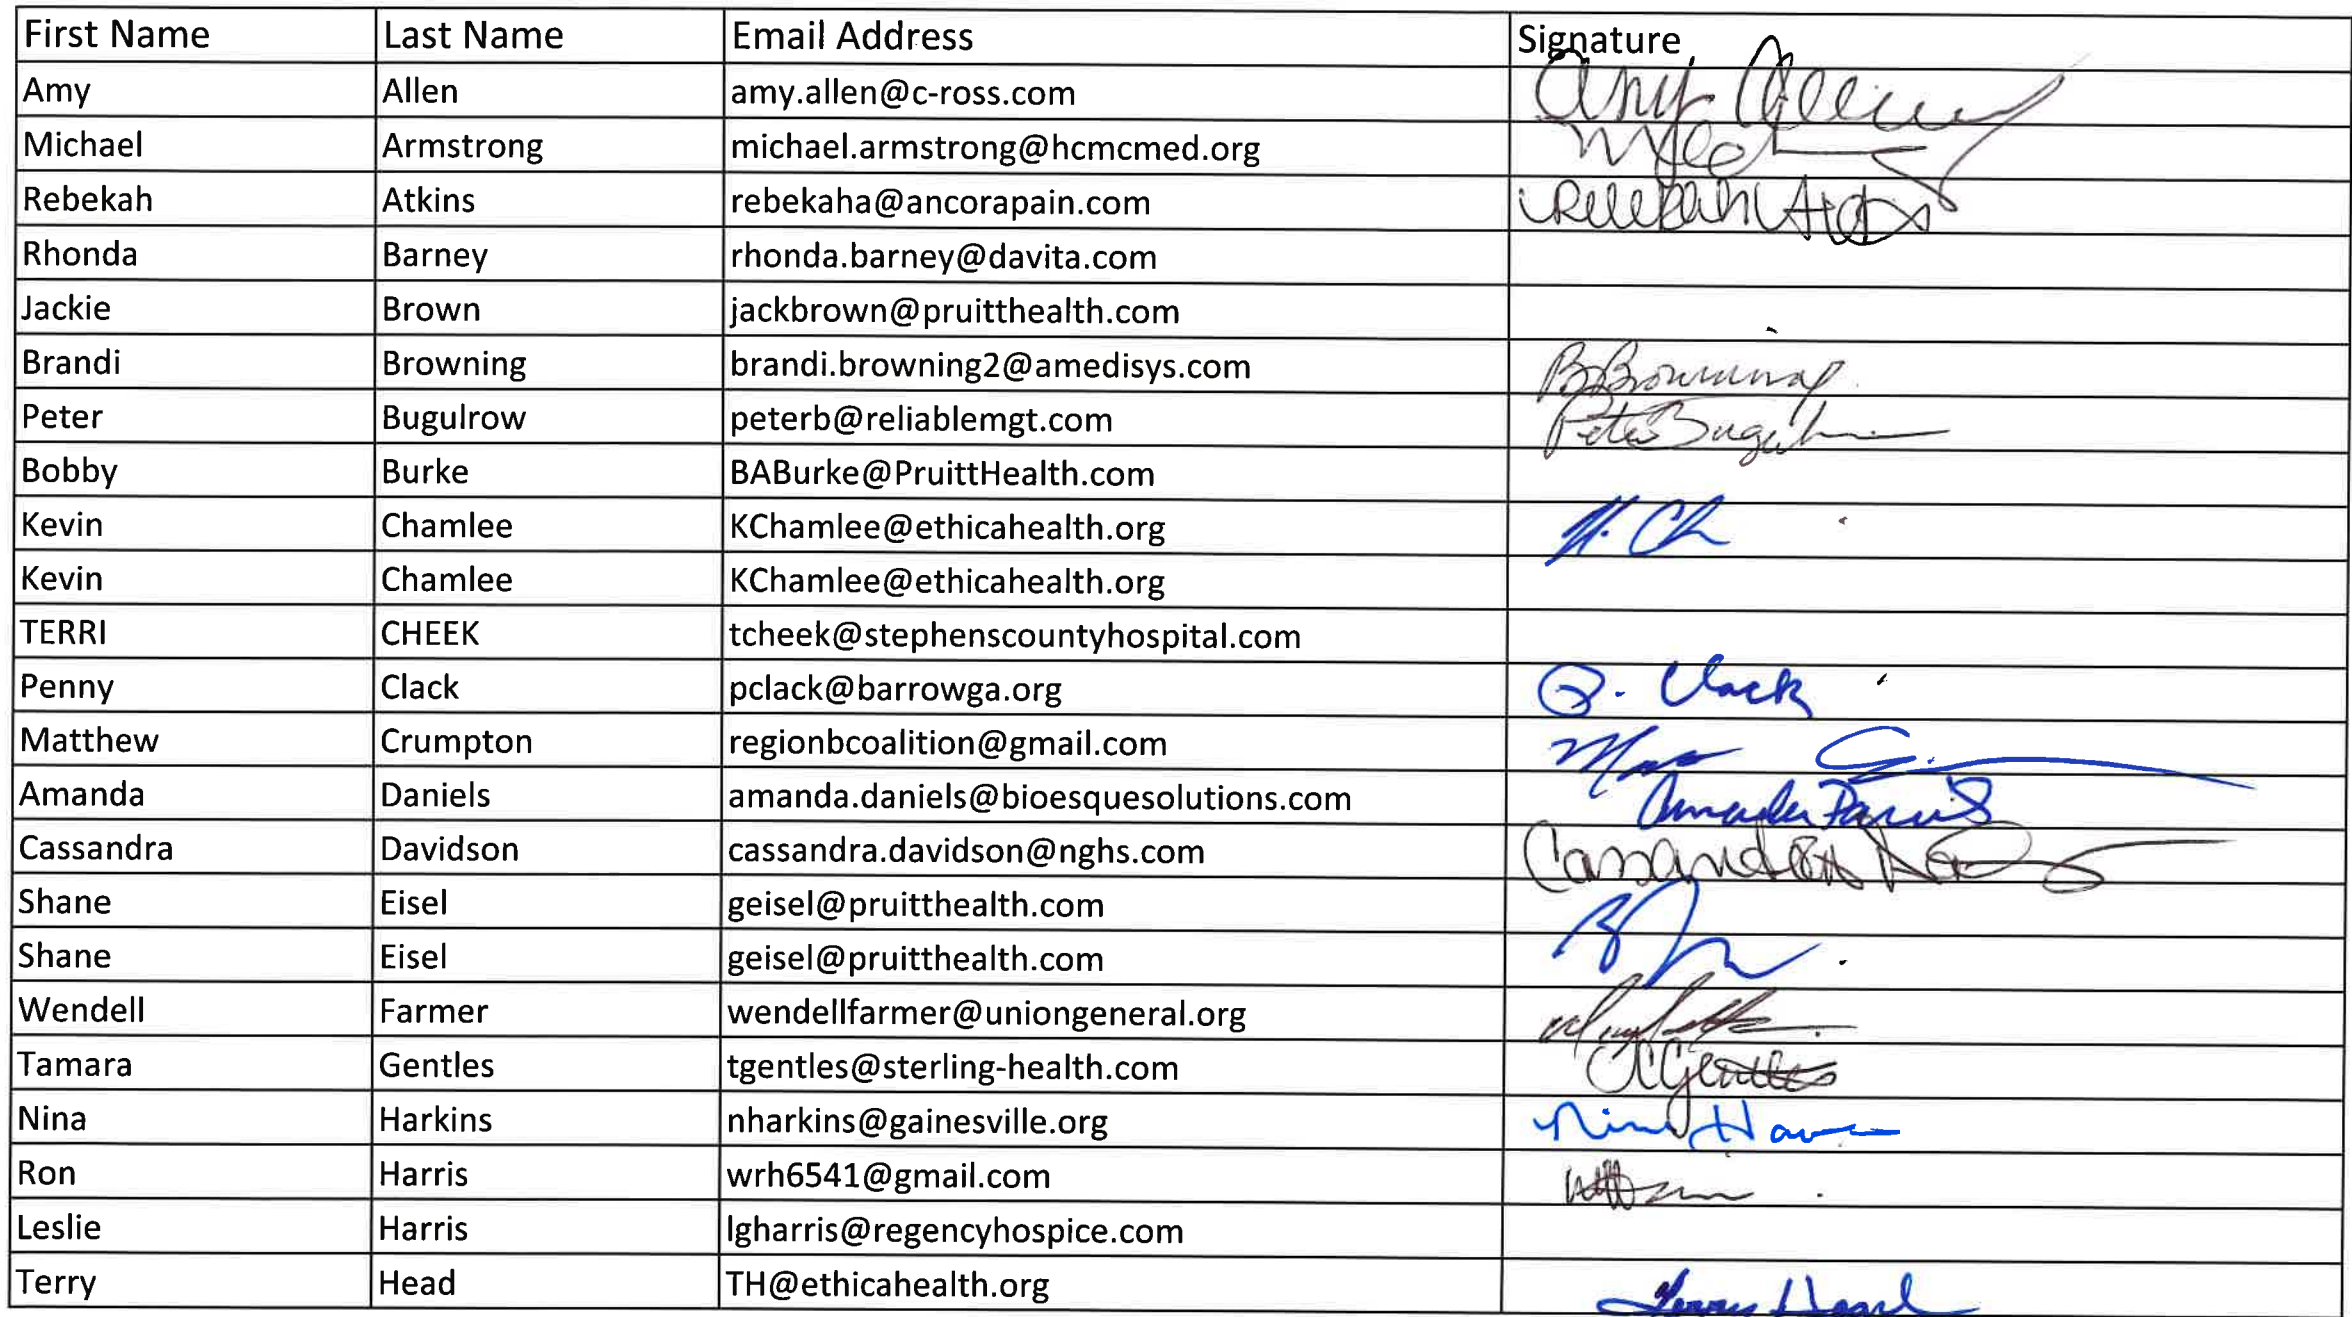 First Name Last Name Email Address Signature
Amy Allen amy.allen@c-ross.com Amy Allen
Michael Armstrong michael.armstrong@hcmcmed.org
Rebekah Atkins rebekaha@ancorapain.com Rebekah Atkins
Rhonda Barney rhonda.barney@davita.com
Jackie Brown jackbrown@pruitthealth.com
Brandi Browning brandi.browning2@amedisys.com B Browning
Peter Bugulrow peterb@reliablemgt.com Peter
Bobby Burke BABurke@PruittHealth.com
Kevin Chamlee KChamlee@ethicahealth.org
Kevin Chamlee KChamlee@ethicahealth.org
TERRI CHEEK tcheek@stephenscountyhospital.com
Penny Clack pclack@barrowga.org P. Clack
Matthew Crumpton regionbcoalition@gmail.com
Amanda Daniels amanda.daniels@bioesquesolutions.com Amanda Daniels
Cassandra Davidson cassandra.davidson@nghs.com Cassandra
Shane Eisel geisel@pruitthealth.com
Shane Eisel geisel@pruitthealth.com
Wendell Farmer wendellfarmer@uniongeneral.org
Tamara Gentles tgentles@sterling-health.com Gentles
Nina Harkins nharkins@gainesville.org Nina
Ron Harris wrh6541@gmail.com
Leslie Harris lgharris@regencyhospice.com
Terry Head TH@ethicahealth.org Terry Head